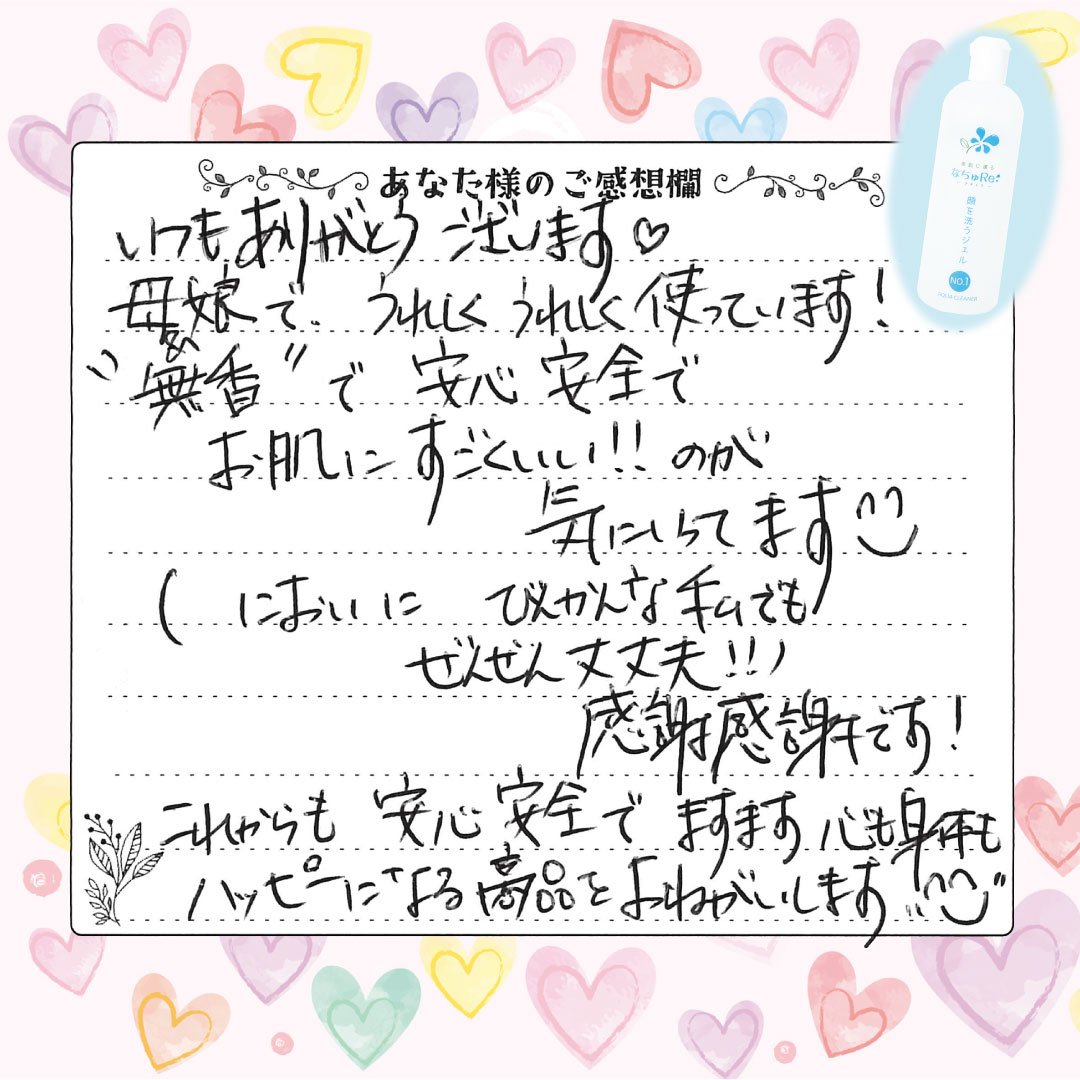 あなた様のご感想欄
いつもありがとうございます♡
母娘で うれしくうれしく使っています!
"無香"で 安心安全で
お肌にすごくいい!!のが
気にいってます
( においに びんかんな私でも
ぜんぜん丈丈夫!!)
感謝感謝です!
これからも 安心安全で ますます 心も身体も
ハッピーになる商品をおねがいします
なちゅRe
顔を洗うジェル
NO.1
AQUA CLEANER